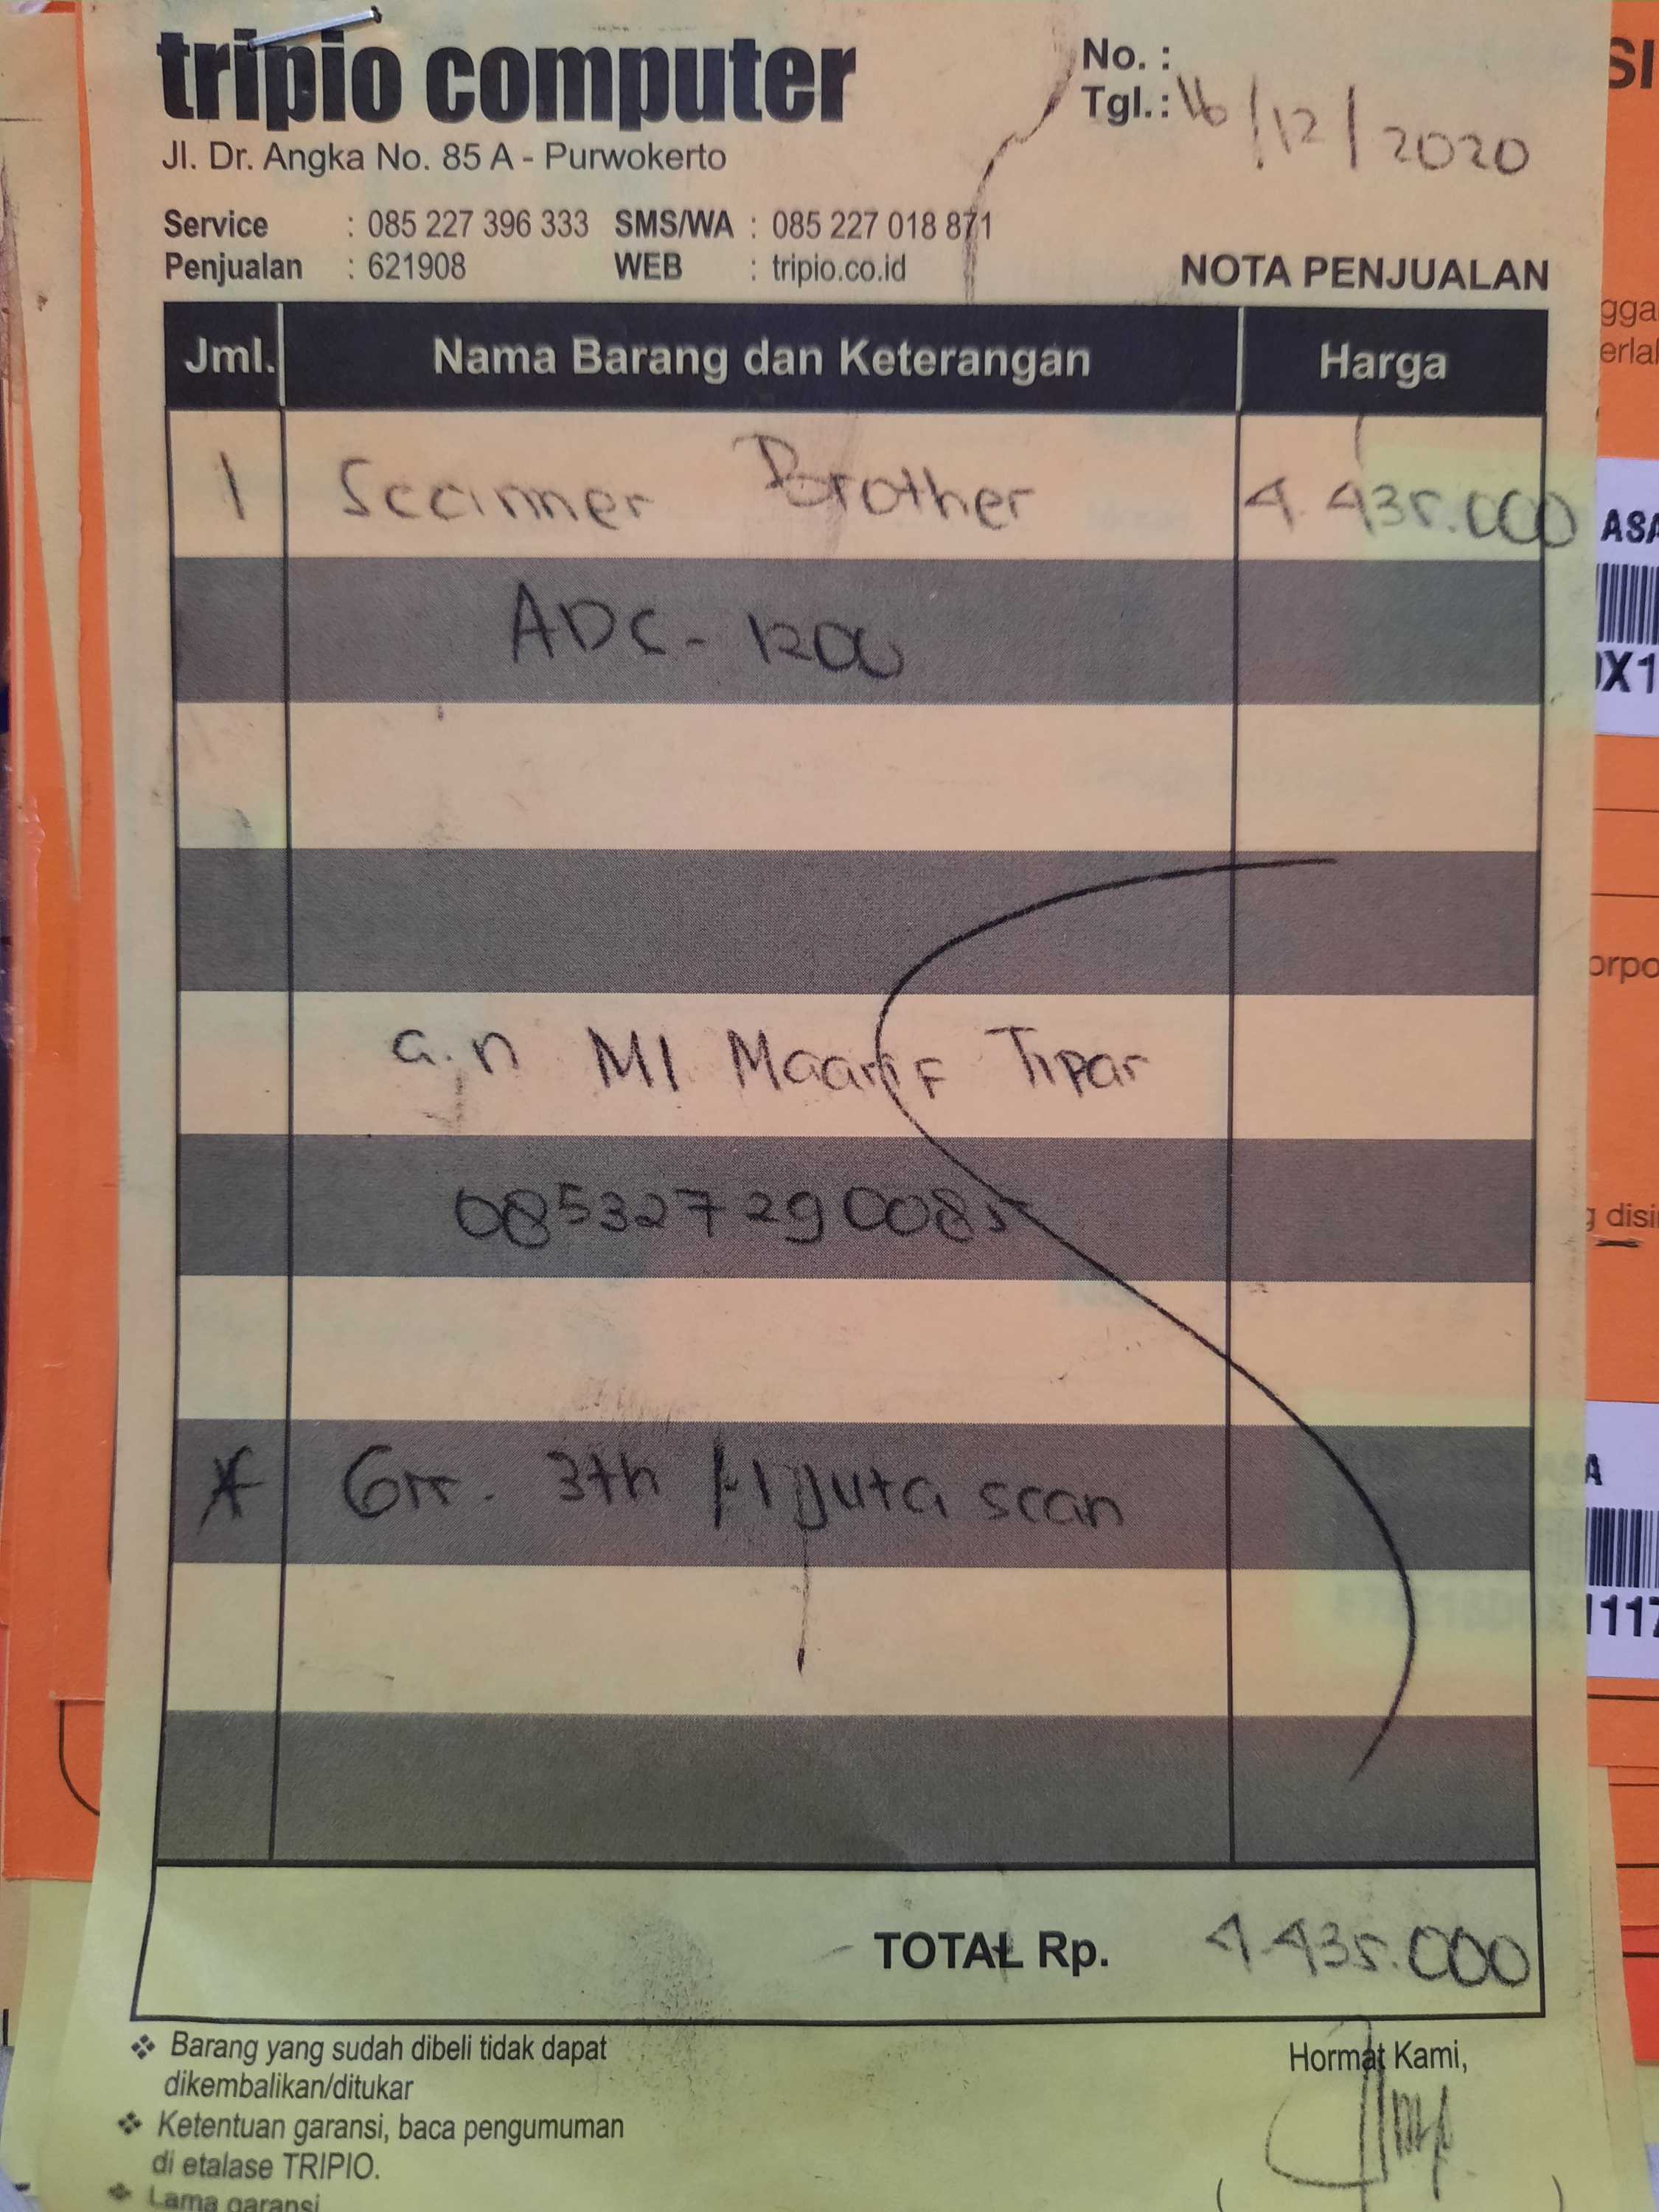 tripio computer
No. :
Tgl. : 16/12/2020
Jl. Dr. Angka No. 85 A - Purwokerto
Service : 085 227 396 333 SMS/WA : 085 227 018 871
Penjualan : 621908 WEB : tripio.co.id
NOTA PENJUALAN
Jml. Nama Barang dan Keterangan Harga
1 Scanner Brother 4.435.000
ADS - 1200
a.n MI Maarif Tipar
085327290085
* Gr. 3th / 1 juta scan
TOTAL Rp. 4.435.000
❖ Barang yang sudah dibeli tidak dapat
dikembalikan/ditukar
❖ Ketentuan garansi, baca pengumuman
di etalase TRIPIO.
❖ Lama garansi
Hormat Kami,
( )
SI
gga
erla
ASA
X1
orpo
disi
A
1117